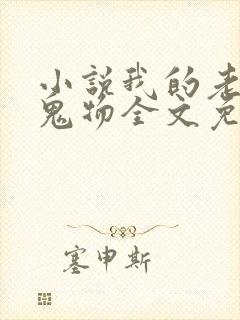 小说我的老
鬼物全文免
塞申斯